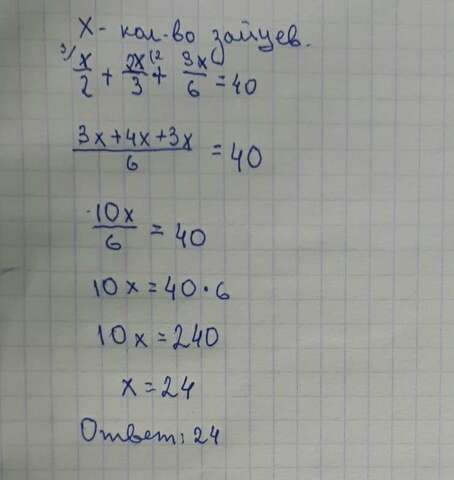 X - кол-во зайцев.
3/ x/2 + 2x/3 (2 + 3x/6 (1 = 40
3x+4x+3x/6 = 40
10x/6 = 40
10x = 40 · 6
10x = 240
x = 24
Ответ: 24